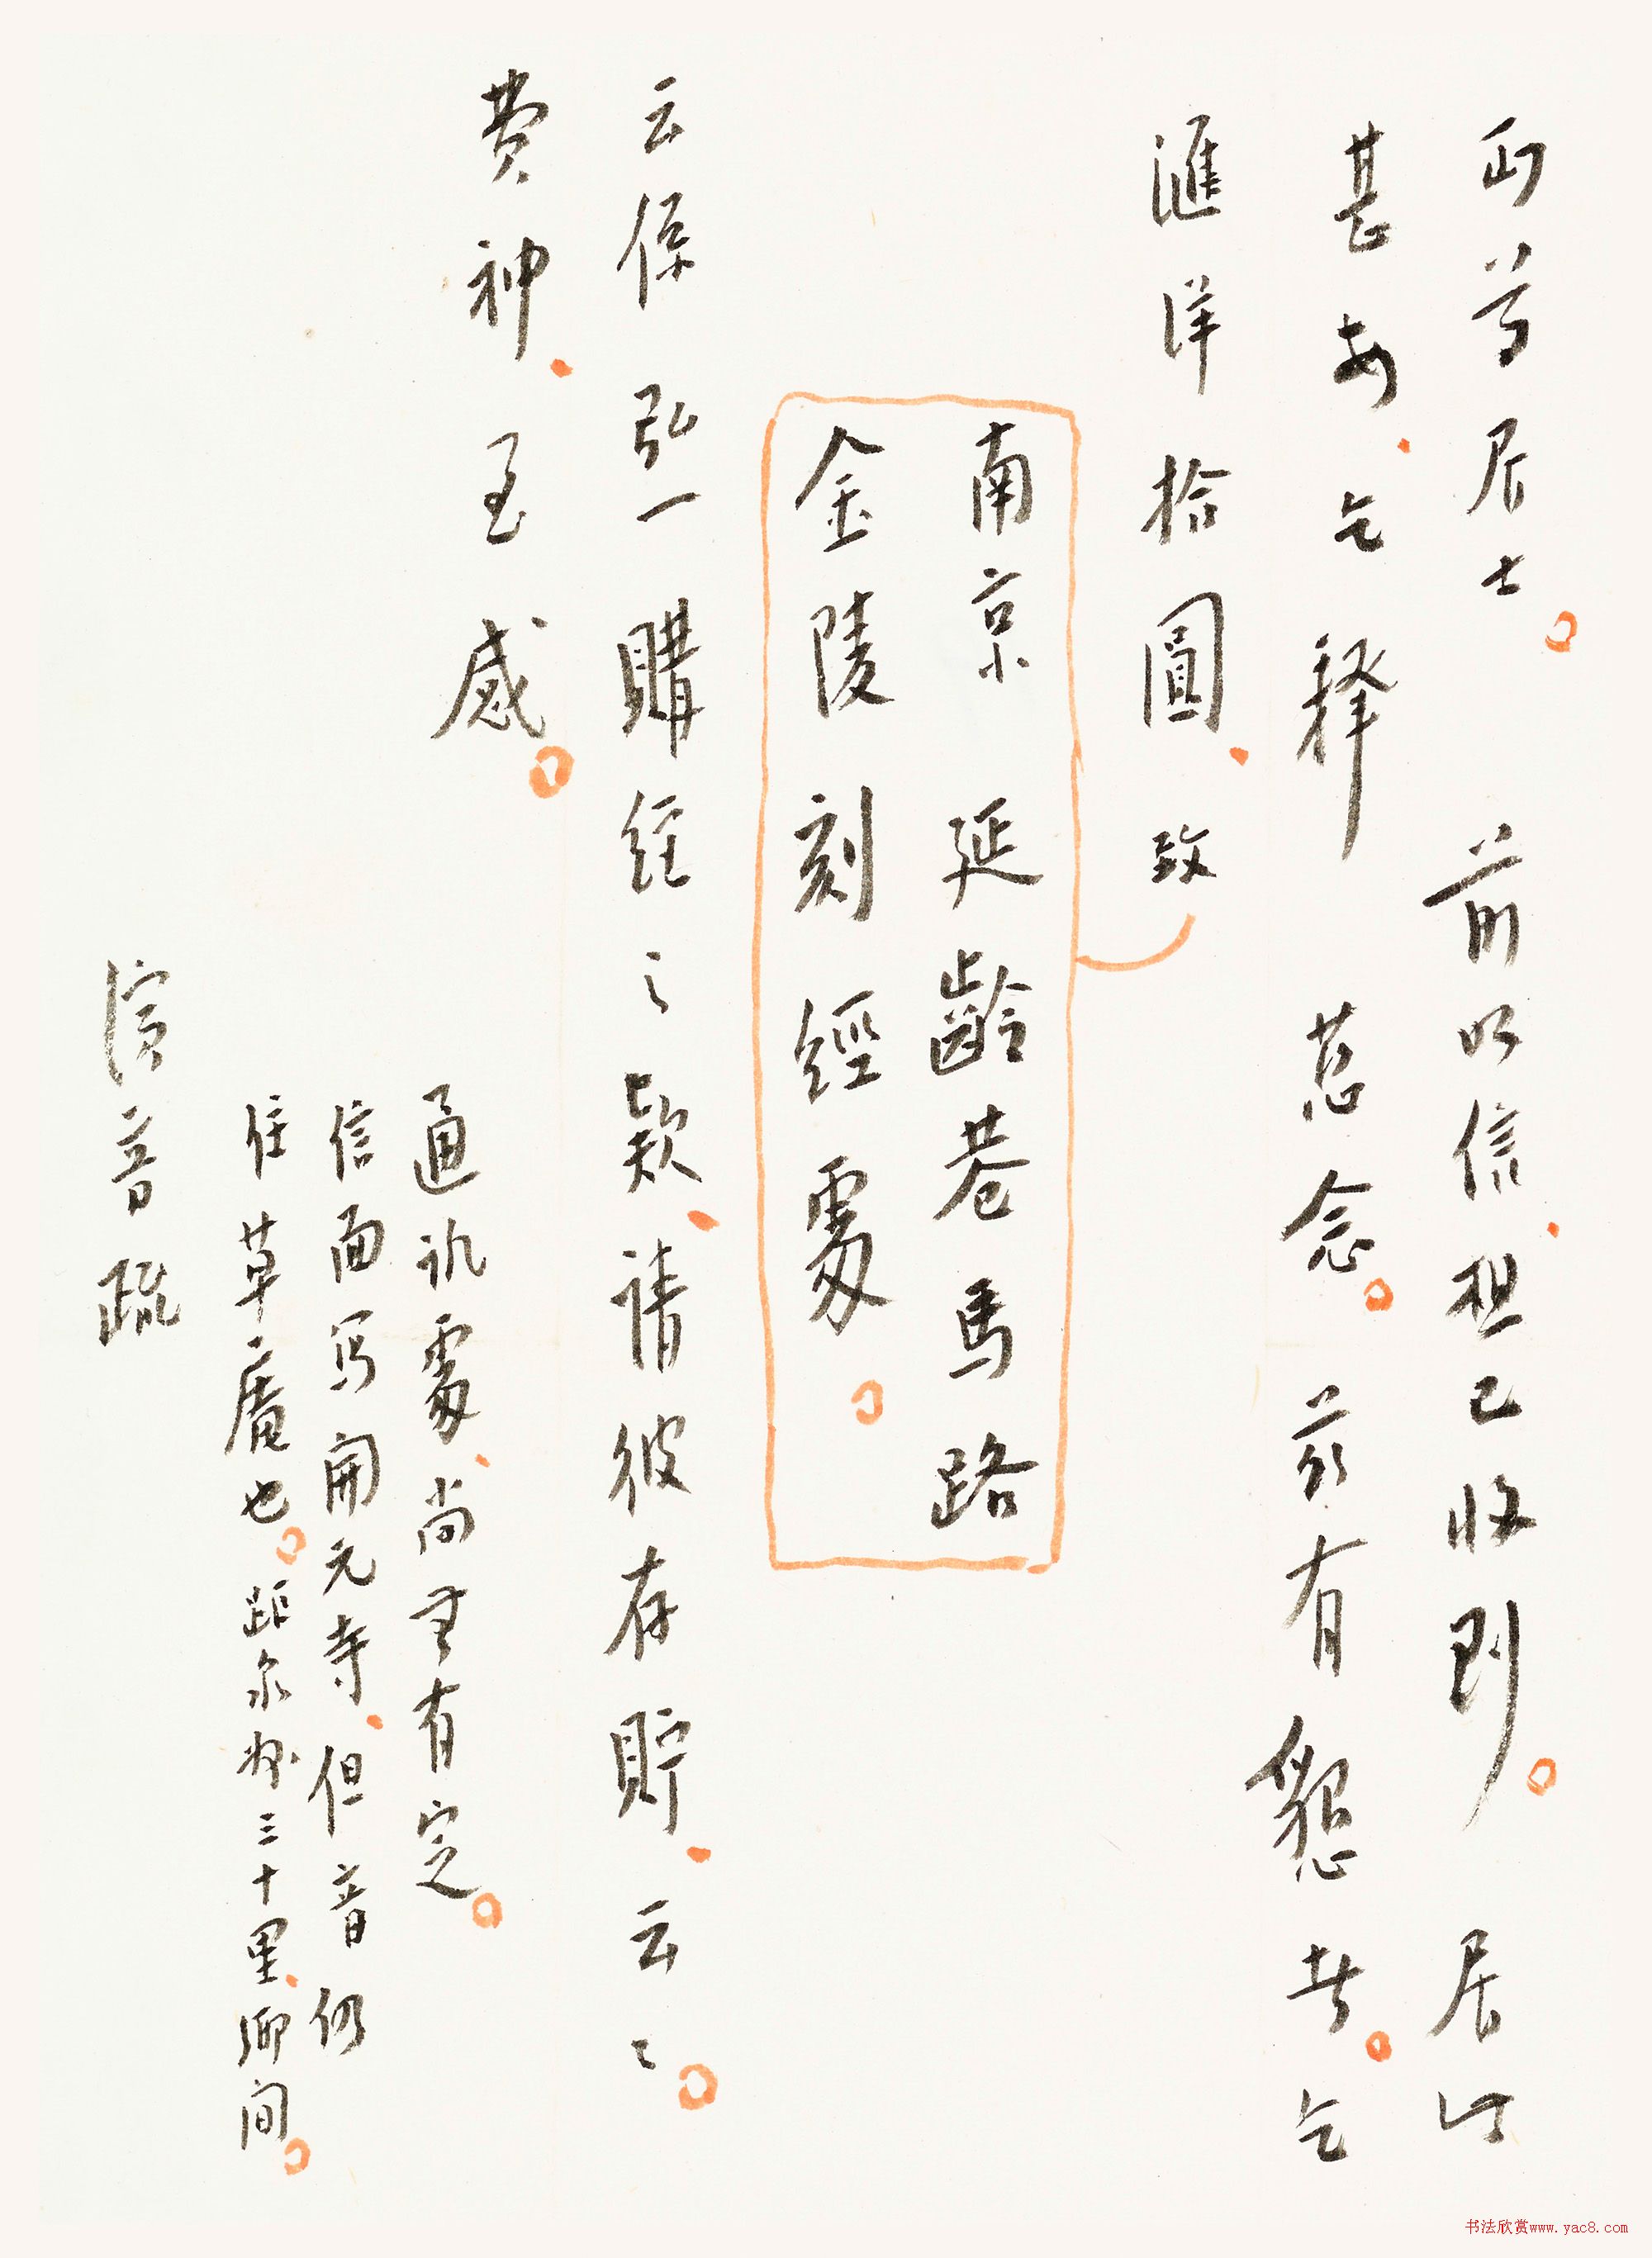 丏尊居士。前明信、想已收到。居此
甚安、乞釋 慈念。茲有懇者。乞
滙洋拾圓、致
南京 延齡巷馬路
金陵刻經處。
云係弘一購經之款、請彼存貯、云々。
費神、至感。
通訊處、尚無有定。
信面写開元寺、但音仍
住草庵也。距泉州三十里、鄉間。
演音疏
书法欣赏www.yac8.com